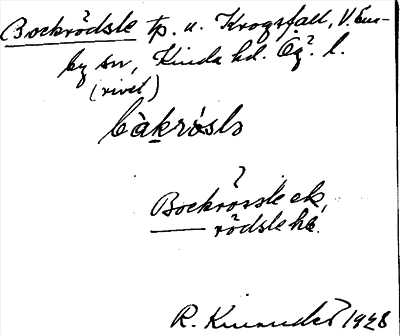 Bockrödsle tp. u. Krogsfall, V. Ene-
by sn, Kinda hd. Ög. l.
(rivet)
bàkrösls
?
Bockrössle ek,
rödsle hé.
R. 1928